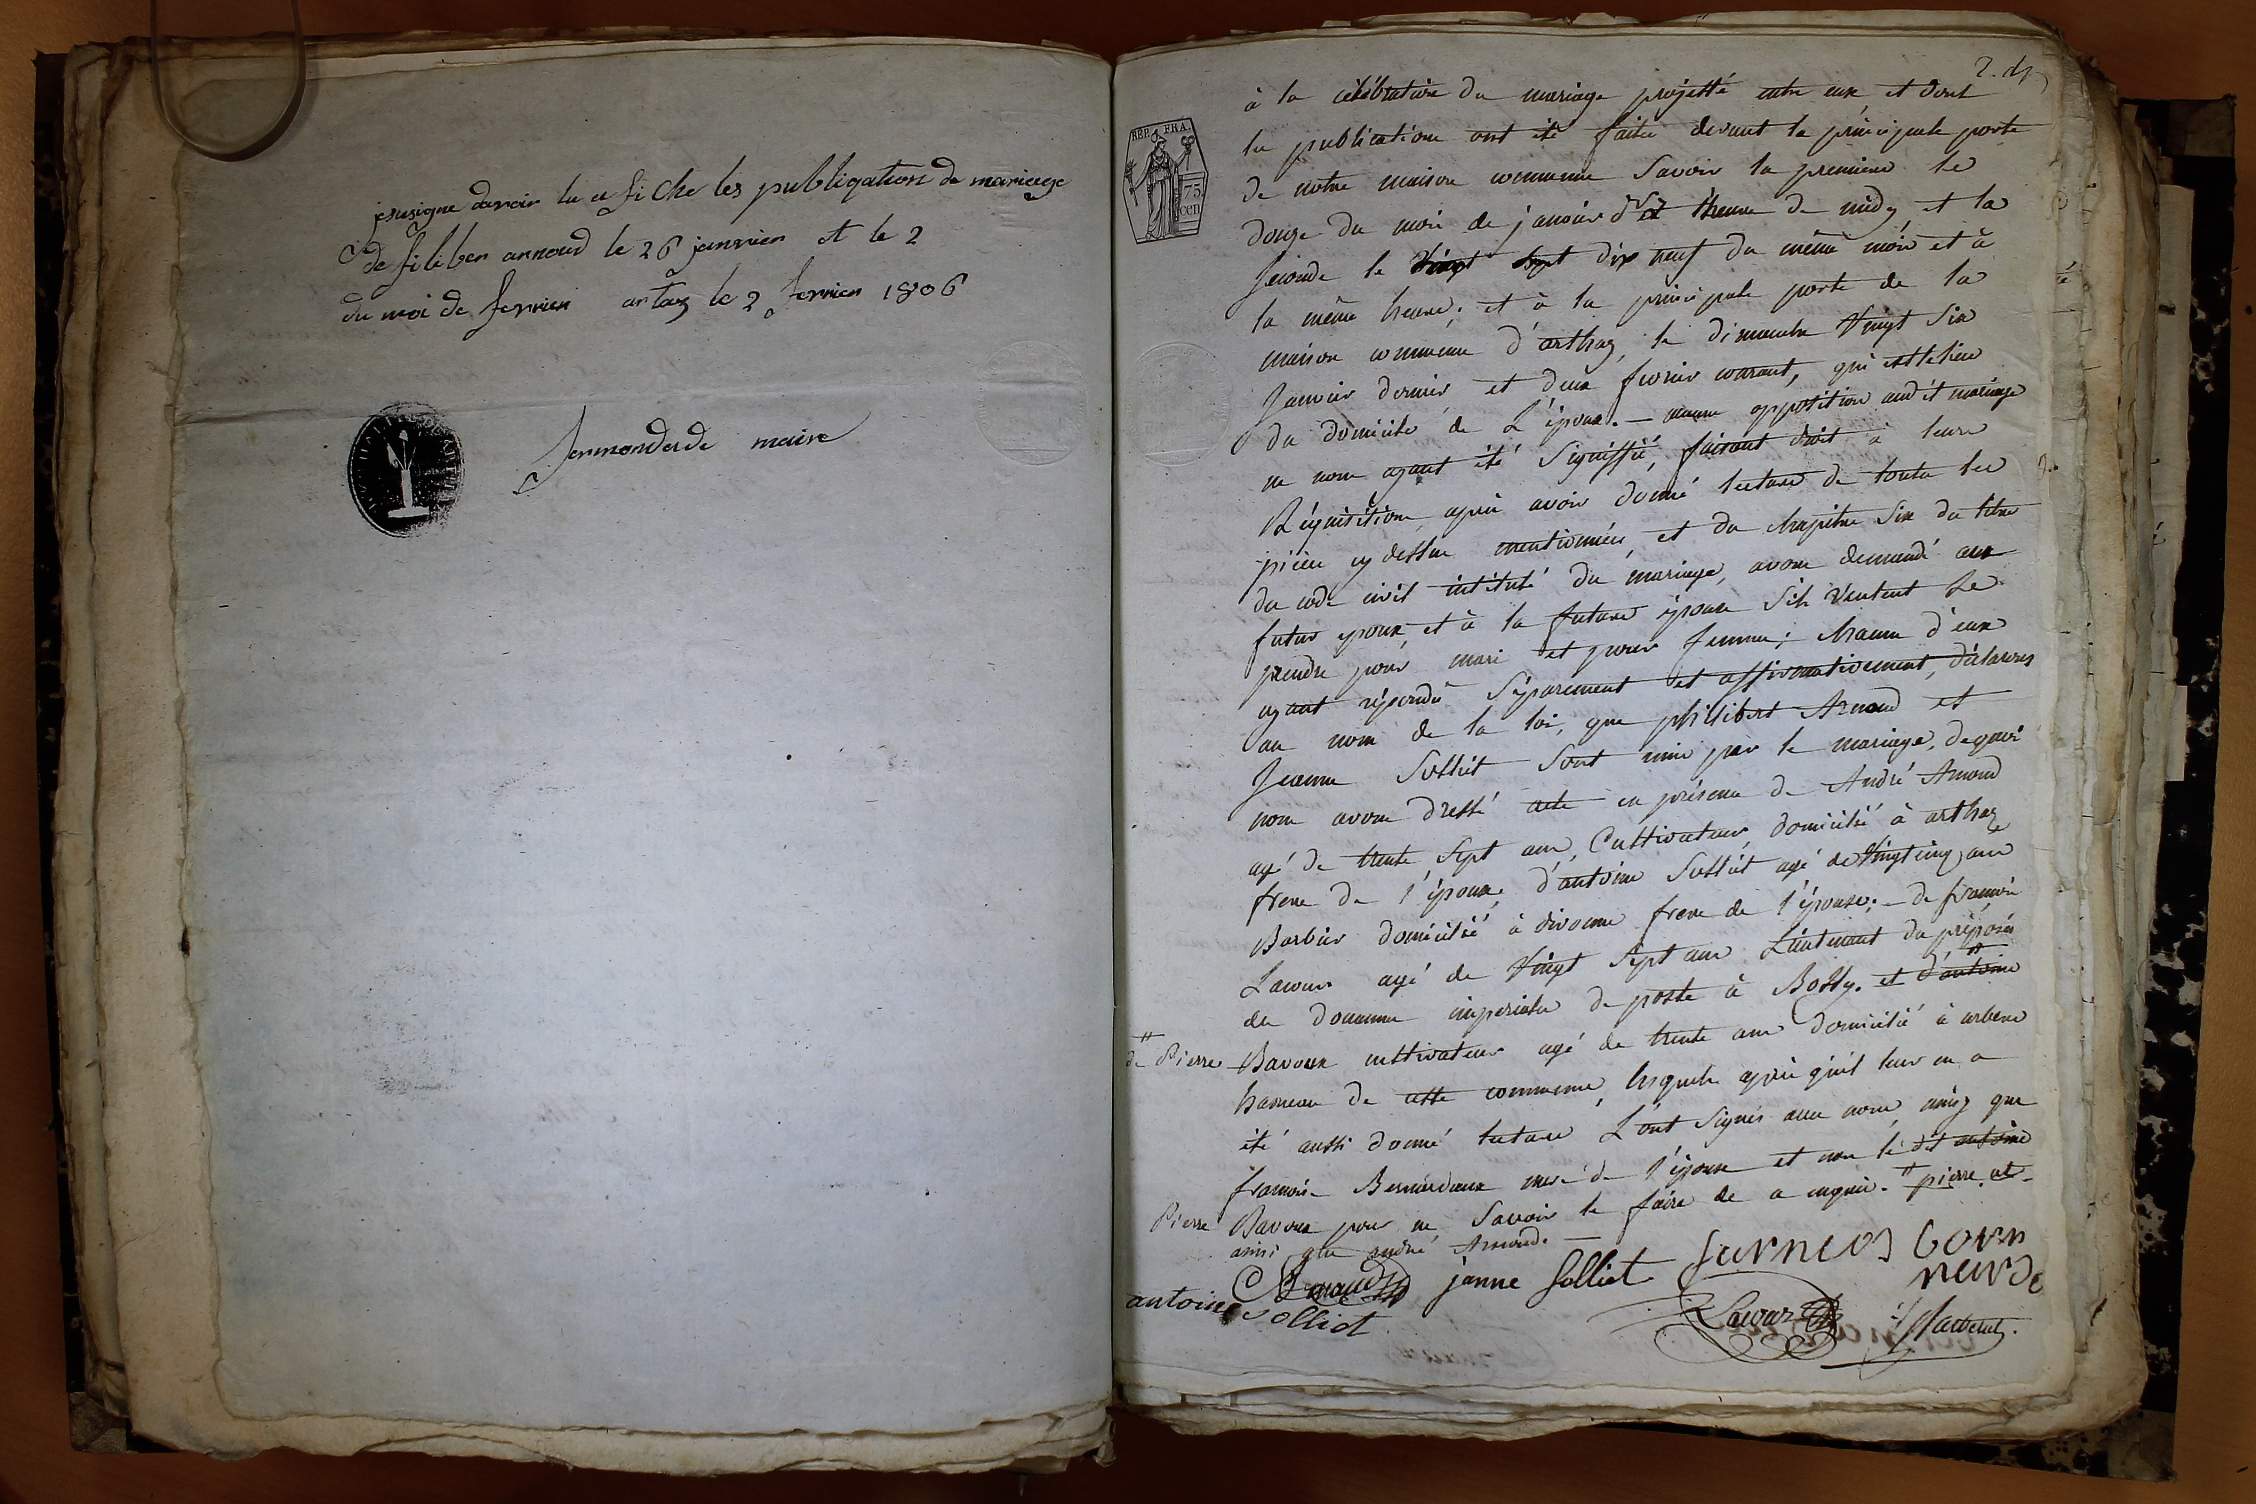 jesusigne davoir lu e fiche les publiqation de mariage
de filiber arnoud le 26 janvier et le 2
du moi de fevrier artaz le 2 fevrier 1806
Jermonderde maire
2. d
REP. FRA.
75
cen
à la célébration du mariage projetté entre eux et dont
les publications ont été faites devant la principale porte
de notre maison commune Savoir la premiere le
douze du mois de janvier dr à l'heure de midy et la
seconde le vingt sept dix neuf du même mois et à
la même heure; et à la principale porte de la
maison commune d'arthaz, le dimanche Vingt Six
Janvier dernier et deux fevrier courant, qui est le lieu
du domicile de L'époux. — aucune opposition au dit mariage
ne nous ayant été Signiffié, faisant droit à leurs
Réquisitions, après avoir donné lecture de toutes les
pièces cy dessus mentionnées, et du chapitre Six du titre
du code civil intitulé du mariage, avons demandé aux
futur epoux, et à la future épouse S'ils Veulent Se
prendre pour mari et pour femme; chacun d'eux
ayant répondu Séparement et affirmativement, déclarons
au nom de la loi, que philibert Arnoud et
Jeanne Solliet Sont unis par le mariage, de quoi
nous avons dressé acte en présence de André Arnoud
agé de trente Sept ans, Cultivateur, domicilié à arthaz
frere de l'époux, d'antoine Solliet agé de Vingt cinq ans
Barbier domicilié à divonne frere de l'épouse; — de françois
Lacour agé de Vingt Sept ans Lieutenant du préposés
des douanes imperiales de poste à Bossy. et d'antoine
de Pierre Bavoux cultivateur agé de trente ans domicilié à arbere
hameau de cette commune, lesquels après qu'il leur en a
été aussi donné lecture L'ont Signés avec nous, ainsy que
françoise Bernardeaux mere de l'épouse et non le dit antoine
Pierre Bavoux pour ne Savoir le faire de ce enquis. pierre et
ainsi que andré Arnoud. —
Arnaud janne Solliet
antoine Solliet
Lacour